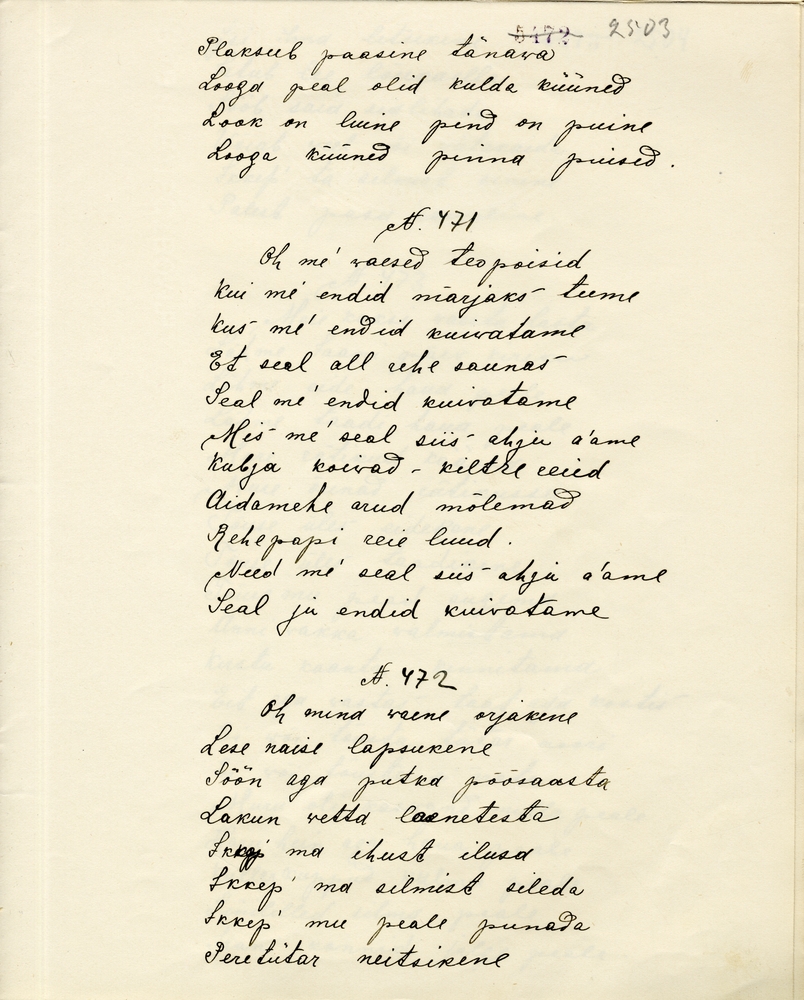 5472 2503
Plaksub paasine tänawa
Looga peal olid kulda küüned
Look on luine pind on puine
Looga küüned pinna puised.
N. 471
Oh me' waesed teopoisid
Kui me' endid märjaks teeme
Kus me' endid kuiwatame
Et seal all rehe saunas
Seal me' endid kuiwatame
Mis me' seal siis ahju a'ame
Kubja koiwad - kiltre reied
Aidamehe arud mõlemad
Rehepapi reie luud.
Need me' seal siis ahju a'ame
Seal ju endid kuiwatame
N. 472
Oh mind waene orjakene
Lese naise lapsukene
Söön aga putka põõsaasta
Lakun wetta laanetesta
ma ihust ilusa
Ikkep' ma silmist sileda
Ikkep' mu peale punada
Peretütar neitsikene